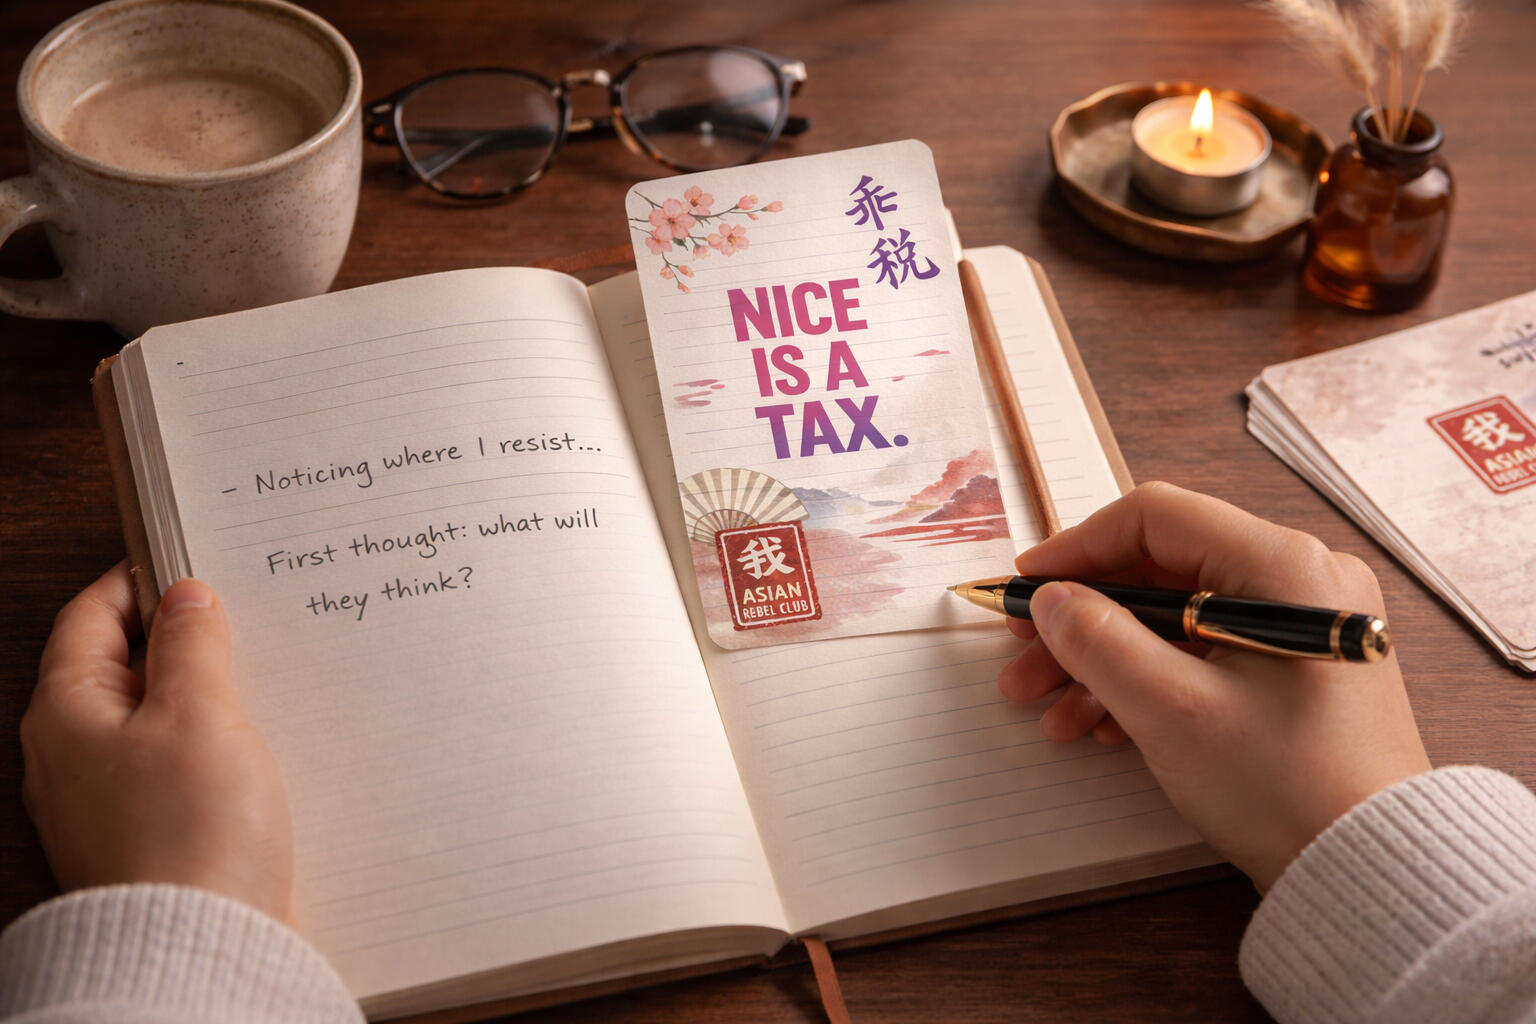 - Noticing where I resist...
First thought: what will
they think?
乖
税
NICE
IS A
TAX.
我
ASIAN
REBEL CLUB
我
ASIAN
REBEL CLUB